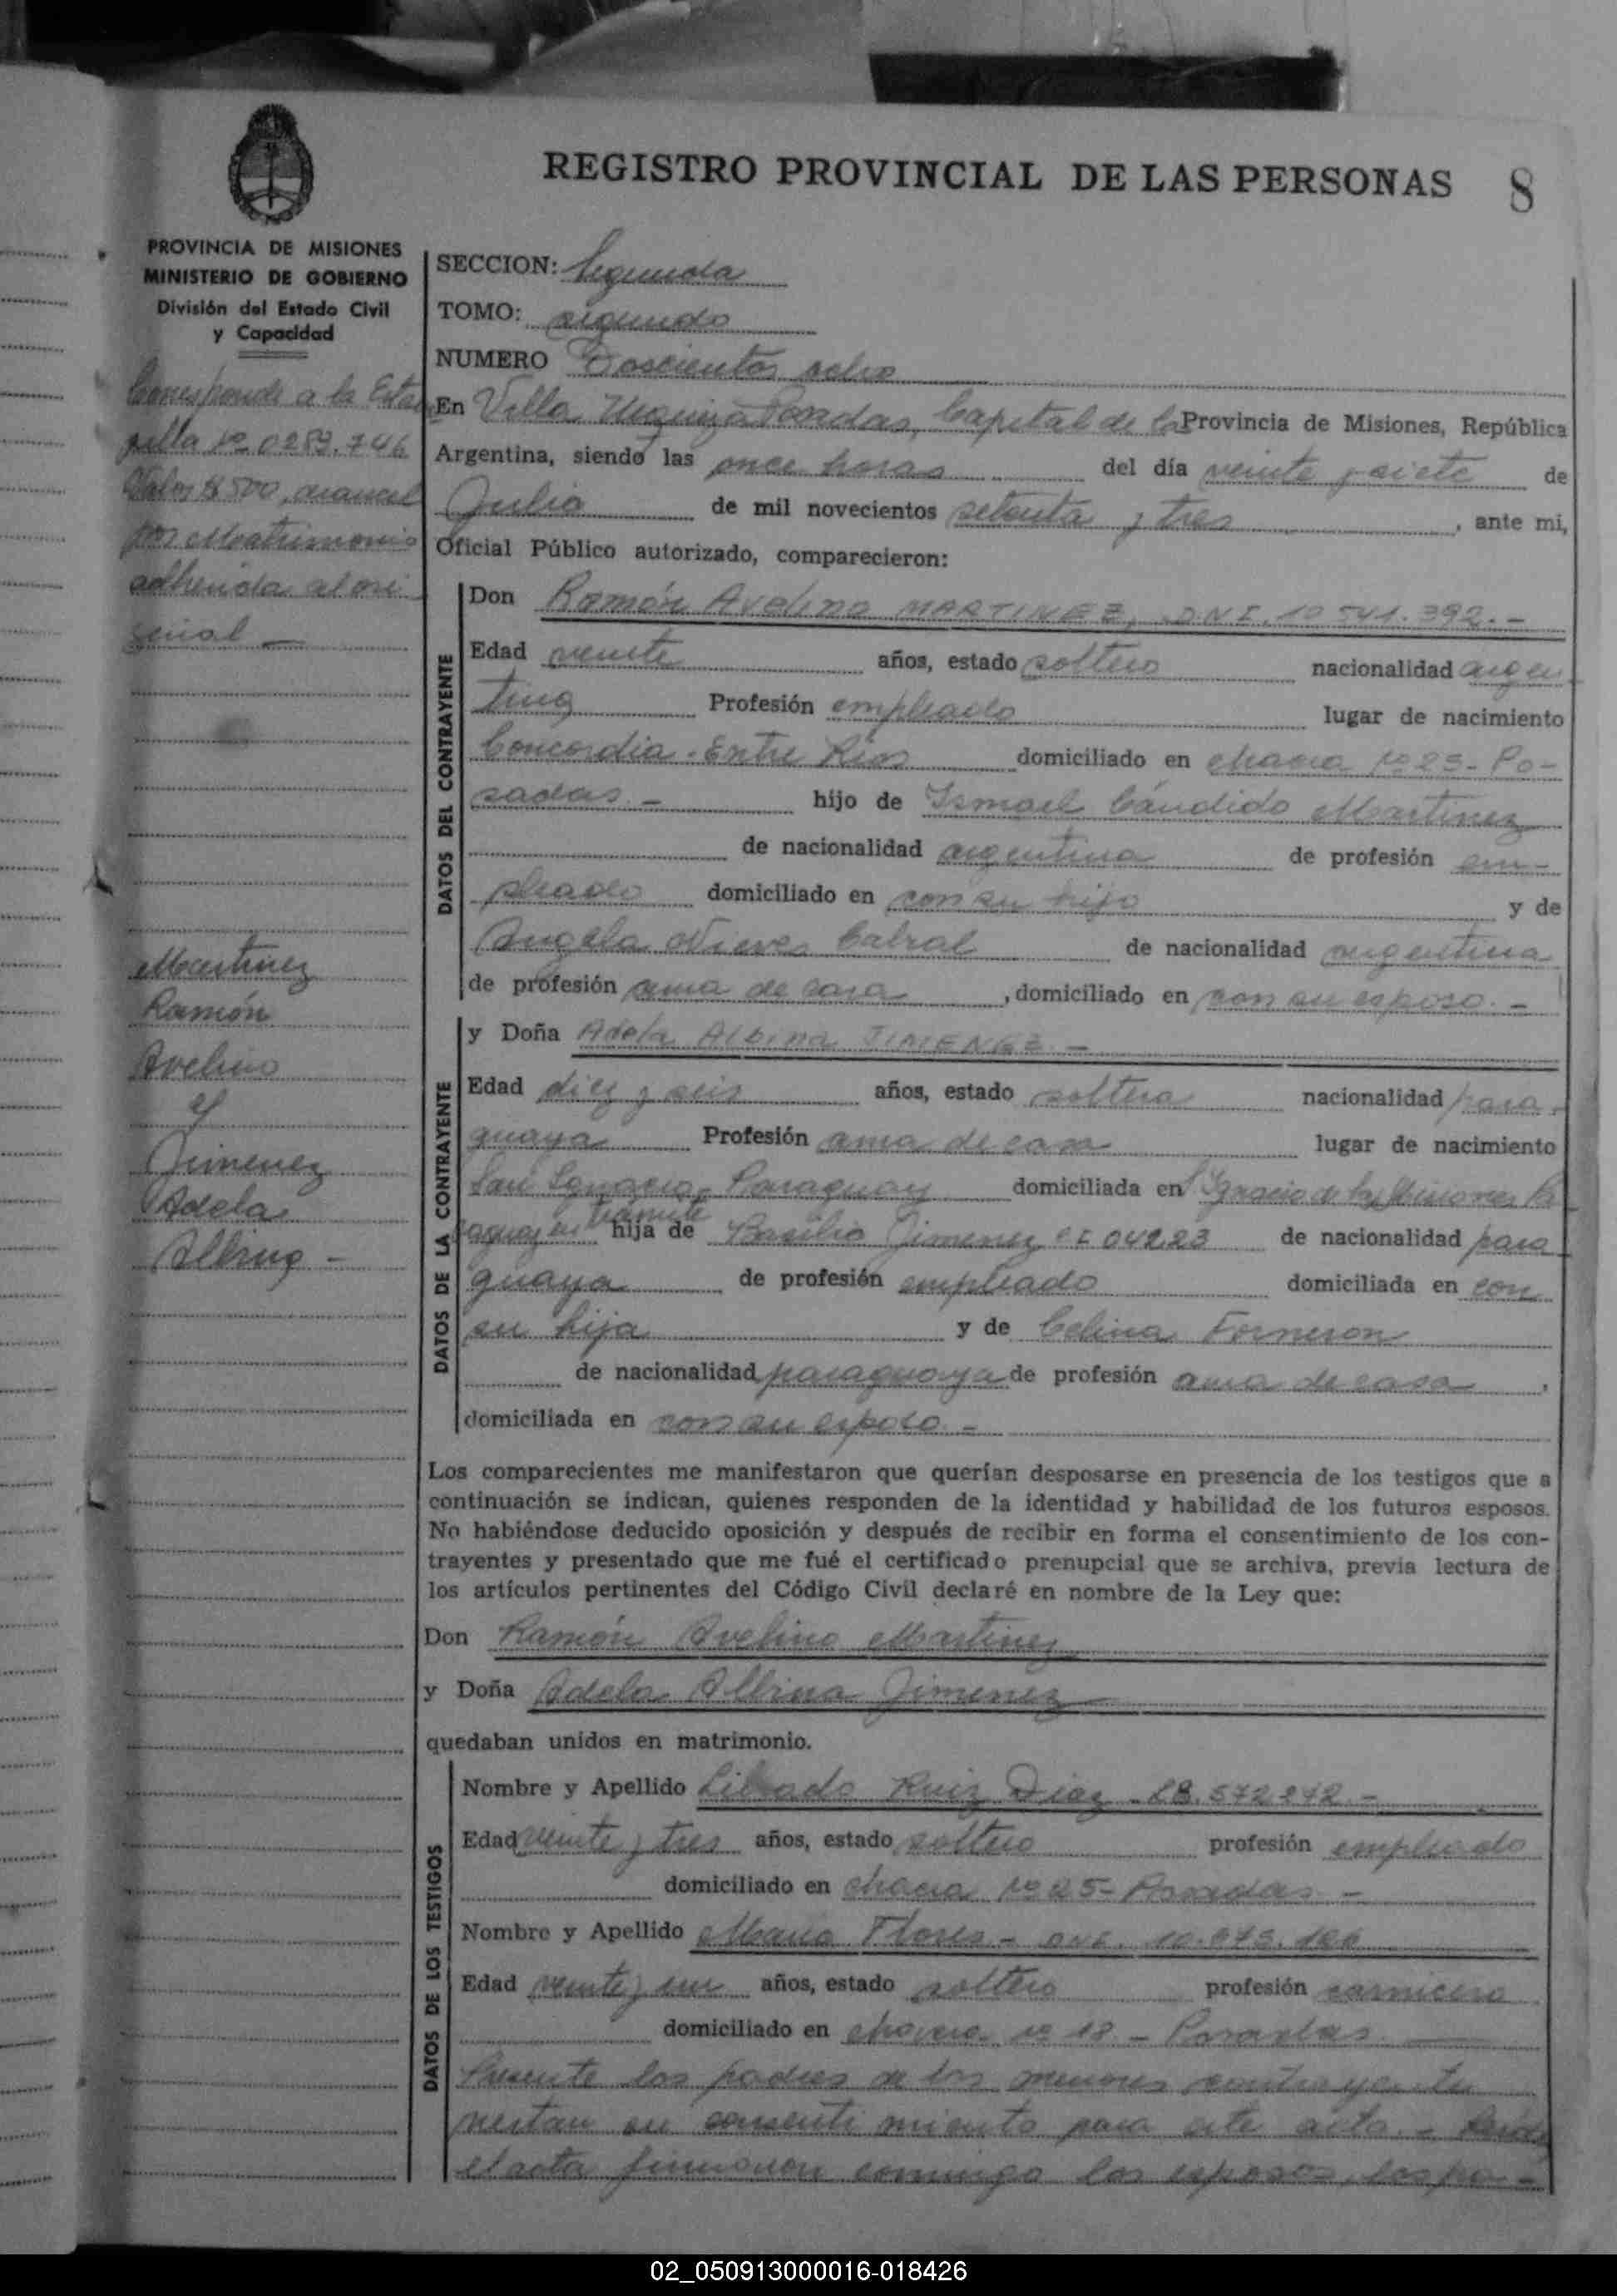 REGISTRO PROVINCIAL DE LAS PERSONAS 8
PROVINCIA DE MISIONES
MINISTERIO DE GOBIERNO
División del Estado Civil
y Capacidad
Corresponde a la Estam
pilla Nº 0289.746
Valor $ 500, arancel
por Matrimonio
adherida al ori
ginal -
Martinez
Ramón
Avelino
y
Jimenez
Adela
Albina -
SECCION: Segunda
TOMO: segundo
NUMERO Doscientos ocho
En Villa Urquiza Posadas, Capital de la Provincia de Misiones, República
Argentina, siendo las once horas del día veinte y siete de
Julio de mil novecientos setenta y tres, ante mi,
Oficial Público autorizado, comparecieron:
DATOS DEL CONTRAYENTE
Don Ramón Avelino MARTINEZ, D.N.I. 10.541.392.-
Edad veinte años, estado soltero nacionalidad argen
tina Profesión empleado lugar de nacimiento
Concordia - Entre Rios domiciliado en chacra Nº 25- Po-
sadas.- hijo de Ismael Cándido Martinez
de nacionalidad argentina de profesión em-
pleado domiciliado en con su hijo y de
Angela Nieves Cabral de nacionalidad argentina
de profesión ama de casa, domiciliado en con su esposo.-
DATOS DE LA CONTRAYENTE
y Doña Adela Albina JIMENEZ.-
Edad diez y seis años, estado soltera nacionalidad para-
guaya Profesión ama de casa lugar de nacimiento
San Ignacio- Paraguay domiciliada en S. Ignacio de las Misiones Pa
raguay en tramite hija de Basilio Jimenez 04223 de nacionalidad para
guaya de profesión empleado domiciliada en con
su hija y de Celina Forneron
de nacionalidad paraguaya de profesión ama de casa,
domiciliada en con su esposo.-
Los comparecientes me manifestaron que querían desposarse en presencia de los testigos que a
continuación se indican, quienes responden de la identidad y habilidad de los futuros esposos.
No habiéndose deducido oposición y después de recibir en forma el consentimiento de los con-
trayentes y presentado que me fué el certificado prenupcial que se archiva, previa lectura de
los artículos pertinentes del Código Civil declaré en nombre de la Ley que:
Don Ramón Avelino Martinez
y Doña Adela Albina Jimenez
quedaban unidos en matrimonio.
DATOS DE LOS TESTIGOS
Nombre y Apellido Librado Ruiz Diaz
Edad veinte y tres años, estado soltero profesión empleado
domiciliado en chacra Nº 25- Posadas -
Nombre y Apellido Mario Flores - DNI.
Edad veinte y un años, estado soltero profesión carnicero
domiciliado en chacra Nº 18 - Posadas
Presente los padres de los menores contrayentes
prestan su consentimiento para este acto.- Leida
el acta firmaron conmigo los esposos, los pa-
02_050913000016-018426